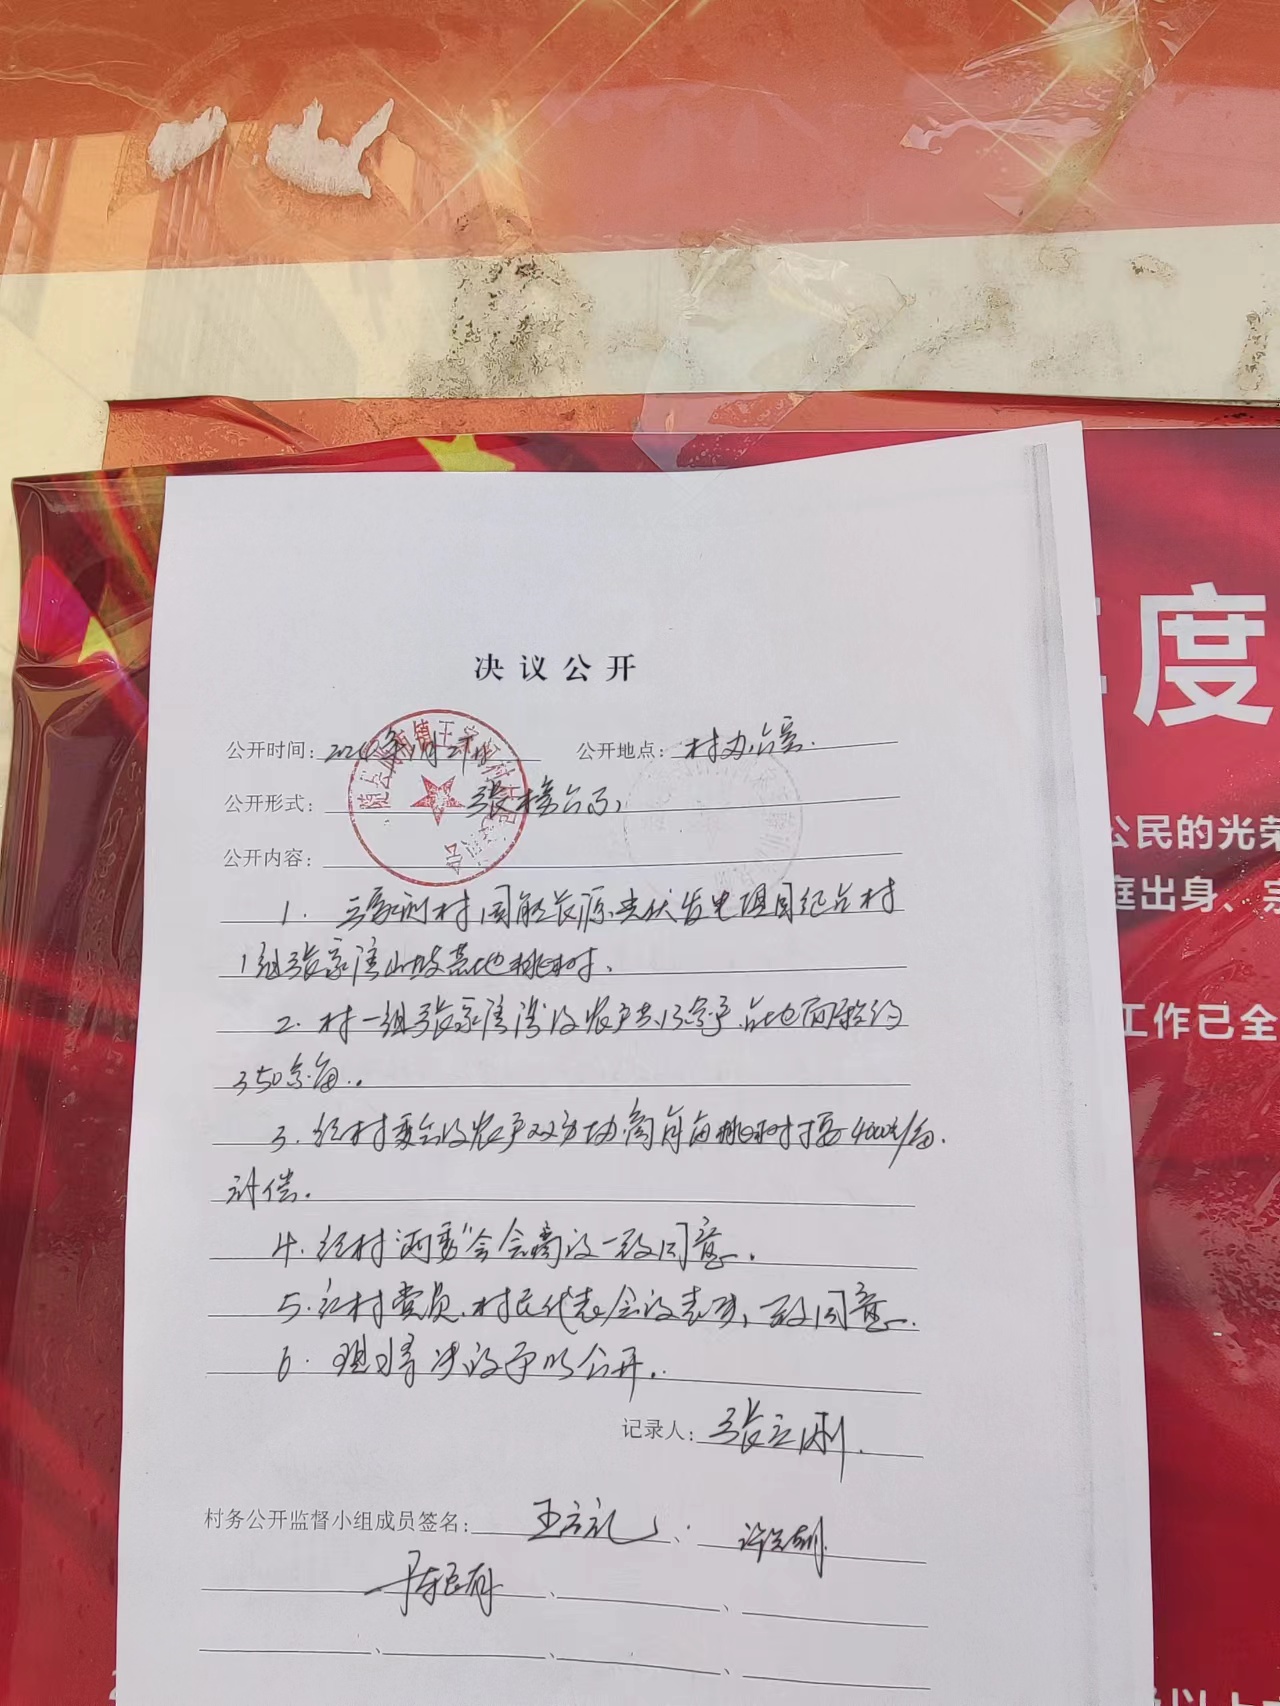 度
公民的光荣
庭出身、宗
工作已全
决议公开
公开时间：
公开地点：村办公室.
公开形式：张榜公示
公开内容：
1. 王家剅村国能长源光伏发电项目纪台村
1组张家湾山坡基地桃树.
2. 村一组张家湾涉及农户共13家户占地面积约
350余亩.
3. 经村委会及农户双方协商每亩桃树按4000元/亩.
补偿.
4. 经村“两委”会会商议一致同意.
5. 经村党员、村民代表会议表决，一致同意.
6. 现将决议予以公开.
记录人：张立刚.
村务公开监督小组成员签名：王立礼、
以上